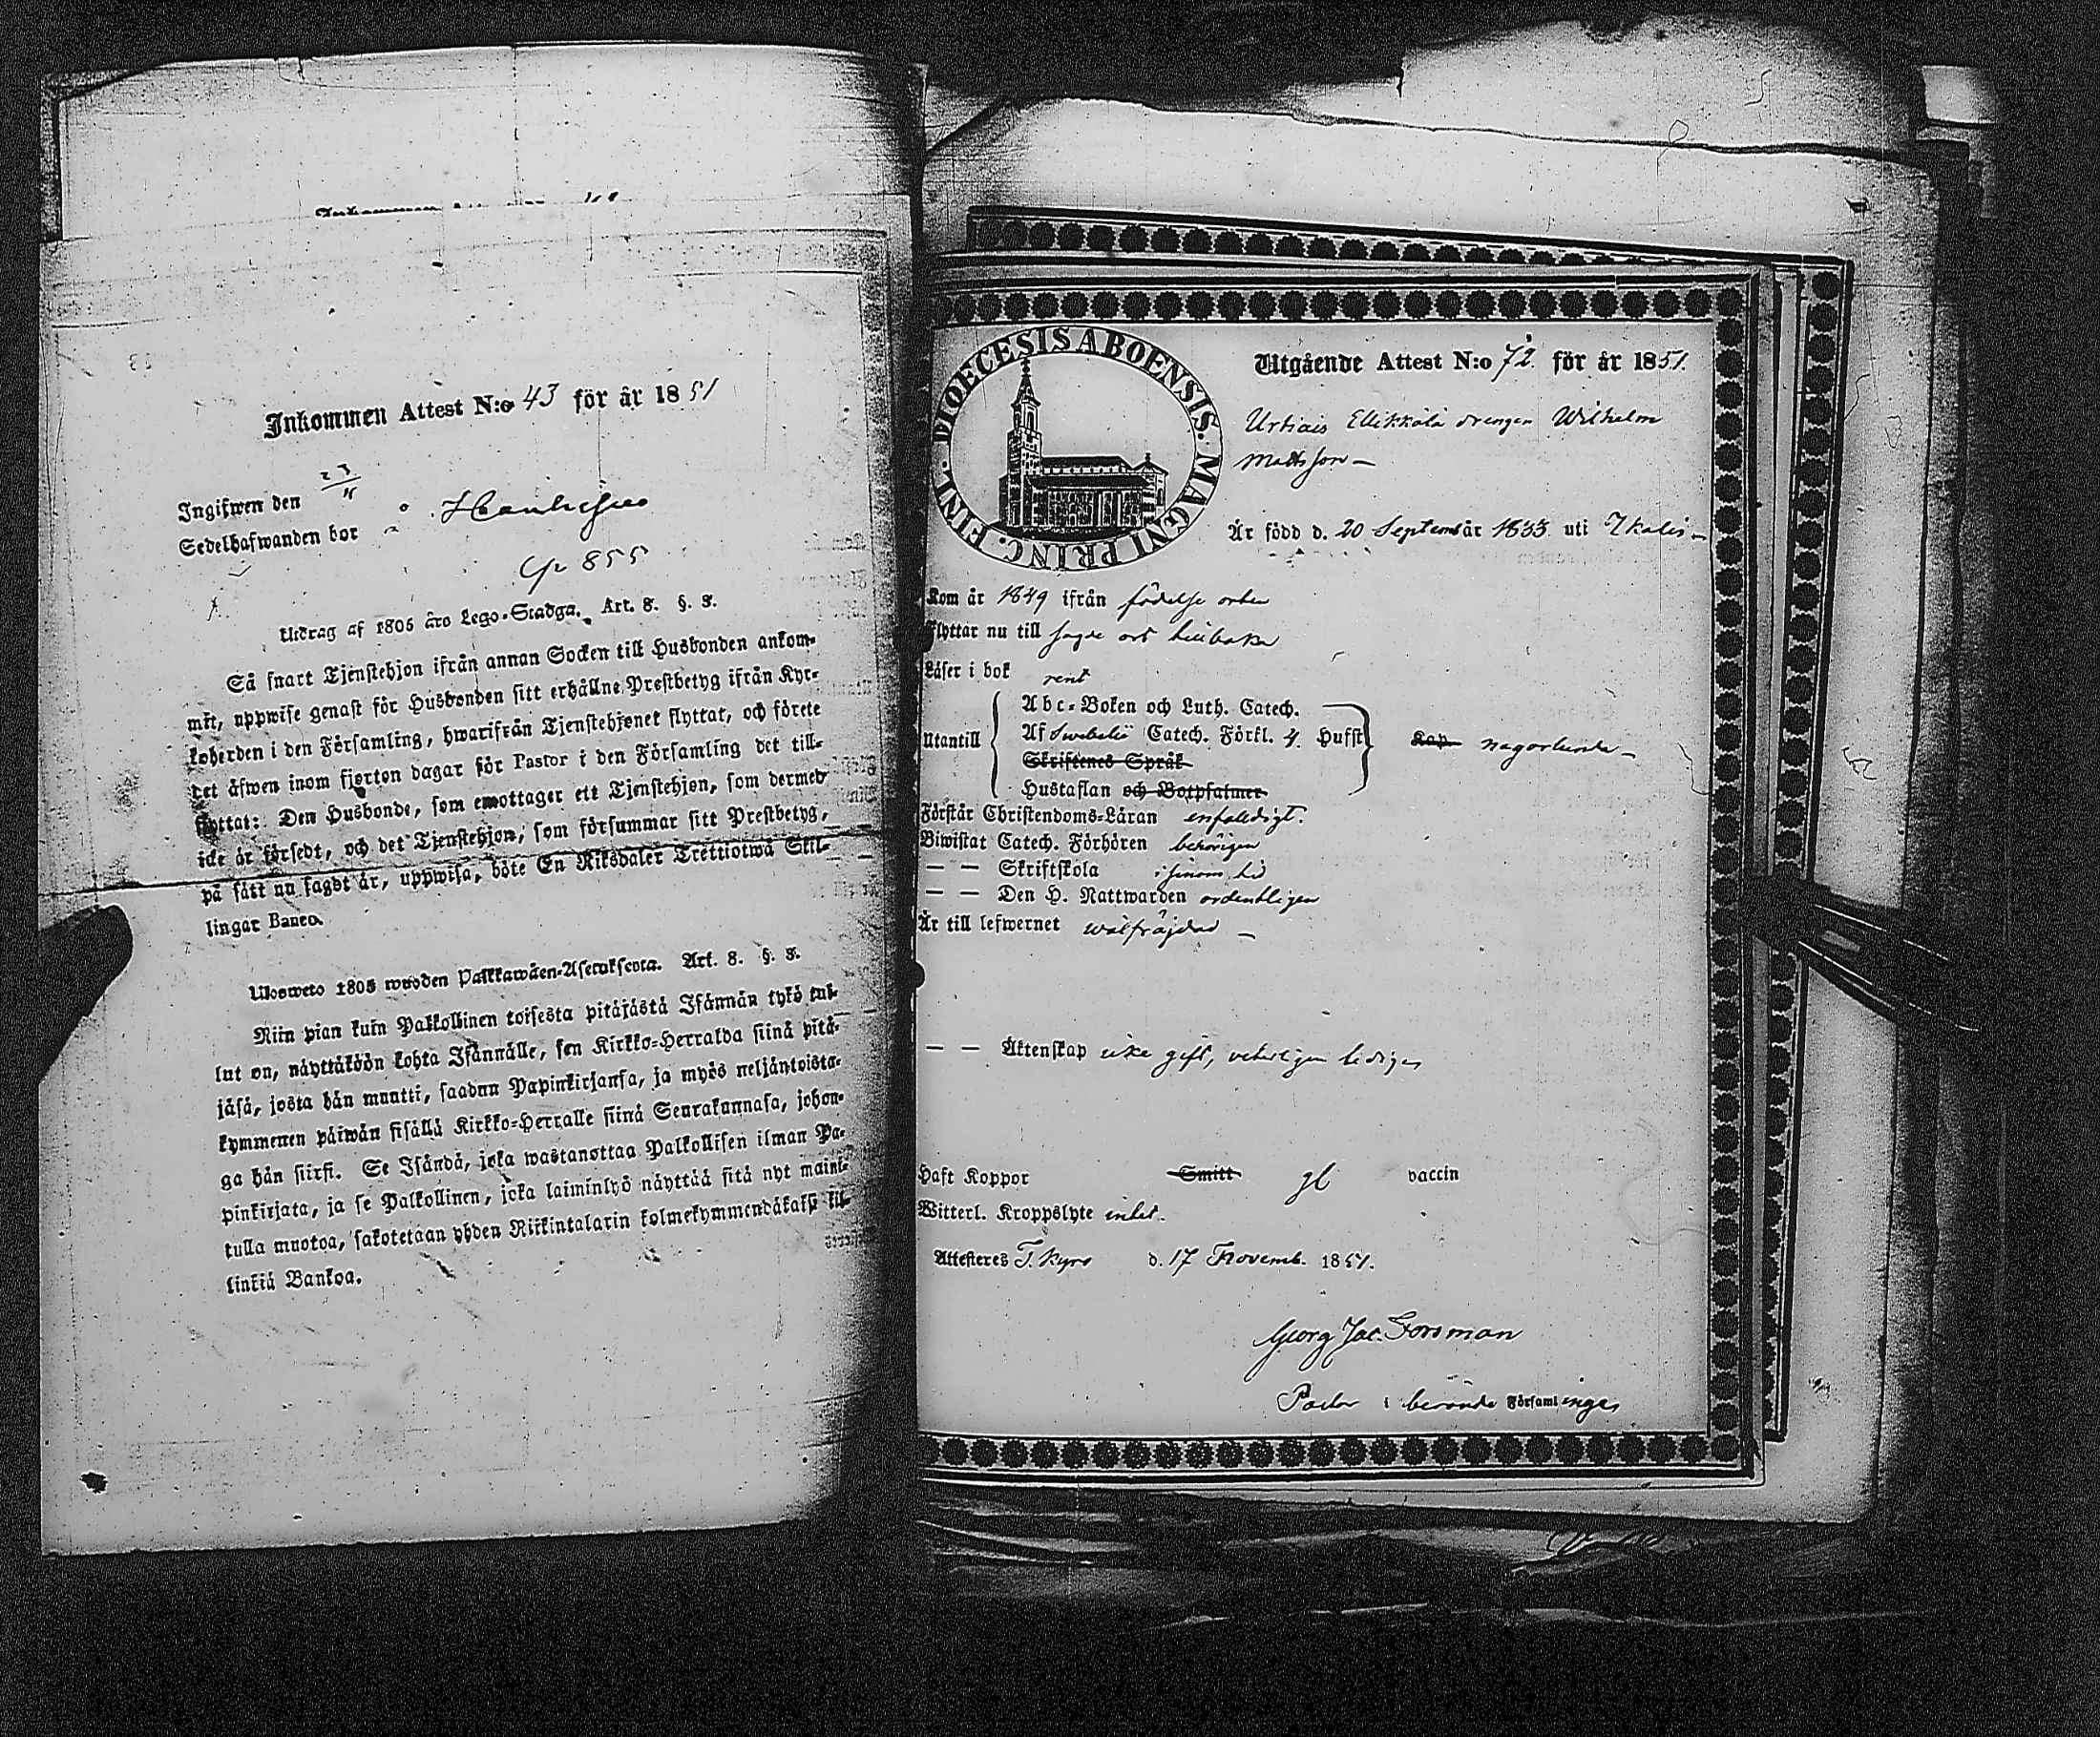 Inkommen Attest N:o 43 för år 1851
Ingifwen den 23/11
Sedelhafwanden bor å
855
Utdrag af 1805 års Lego-Stadga. Art. 8. §. 3.
Så snart Tjenstehjon ifrån annan Socken till Husbonden ankom-
mit, uppwise genast för Husbonden sitt erhållne Prestbetyg ifrån Kyr-
koherden i den Församling, hwarifrån Tjenstehjonet flyttat, och förete
det äfwen inom fjorton dagar för Pastor i den Församling det till-
flyttat: Den Husbonde, som emottager ett Tjenstehjon, som dermed
icke är försedt, och det Tjenstehjon, som försummar sitt Prestbetyg,
på sätt nu sagdt är, uppwisa, böte En Riksdaler Trettiotwå Skil-
lingar Banco.
Ulosweto 1805 wuoden Palkkawäen-Asetuksesta. Art. 8. §. 3.
Niin pian kuin Palkollinen toisesta pitäjästä Isännän tykö tul-
lut on, näyttäköön kohta Isännälle, sen Kirkko-Herralda siinä pitä-
jäsä, josta hän muutti, saadun Papinkirjansa, ja myös neljäntoista-
kymmenen päiwän sisällä Kirkko-Herralle siinä Seurakunnasa, johon-
ga hän siirsi. Se Isändä, joka wastanottaa Palkollisen ilman Pa-
pinkirjata, ja se Palkollinen, joka laiminlyö näyttää sitä nyt maini-
tulla muotoa, sakotetaan yhden Riikintalarin kolmekymmendäkaksi kil-
linkiä Bankoa.
DIOECESIS ABOENSIS. MAGNI PRINC. FINL.
Utgående Attest N:o 72 för år 1851.
drengen Wilhelm
Mattsson
Är född d. 20 Septemb år 1833 uti Ikalis
Kom år 1849 ifrån födelse orten
Flyttar nu till sagde ort tillbaka
Läser i bok rent
Utantill
Abc-Boken och Luth. Catech.
Af Swebelii Catech. Förkl. 4. Hufst
Skriftenes Språk
Hustaflan och Botpsalmer
Kap någorlunda
Förstår Christendoms-Läran enfaldigt.
Biwistat Catech. Förhören behörigen
— — Skriftskola i sinom tid
— — Den H. Nattwarden ordentligen
Är till lefwernet wälfräjdad
— — Äktenskap icke gift, veterligen ledig
Haft Koppor Smitt vaccin
Witterl. Kroppslyte intet.
Attesteres T. Kyro d. 17 Novemb. 1851.
Georg Jac. Forsman
Pastor i berörde Församlingen